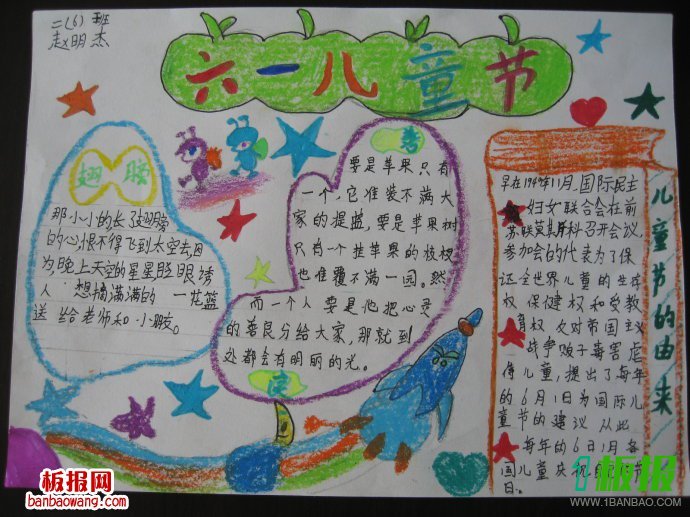 二(6) 班
赵明杰
六一儿童节
翅膀
那小小的长了翅膀
的心恨不得飞到太空去,因
为,晚上天空的星星眨眼诱
人 想摘满满的 一花篮
送 给老师和小朋友。
秀
要是苹果只有
一个,它准装不满大
家的提蓝,要是苹果树
只有一个挂苹果的枝杈
也准覆不满一园。然
而一个人要是他把心灵
的善良分给大家,那就到
处都会有明丽的光。
儿童节的由来
早在1949年11月,国际民主
妇女联合会在前
苏联莫斯科召开会议,
参加会的代表为了保
证全世界儿童的生存
权 保健权和受教
育权 反对帝国主义
战争贩子毒害虐
待儿童,提出了每年
的6月1日为国际儿
童节的建议 从此
每年的6月1日各
国儿童庆祝
日。
板报网
www.baobanwang.com
板报
WWW.1BANBAO.COM